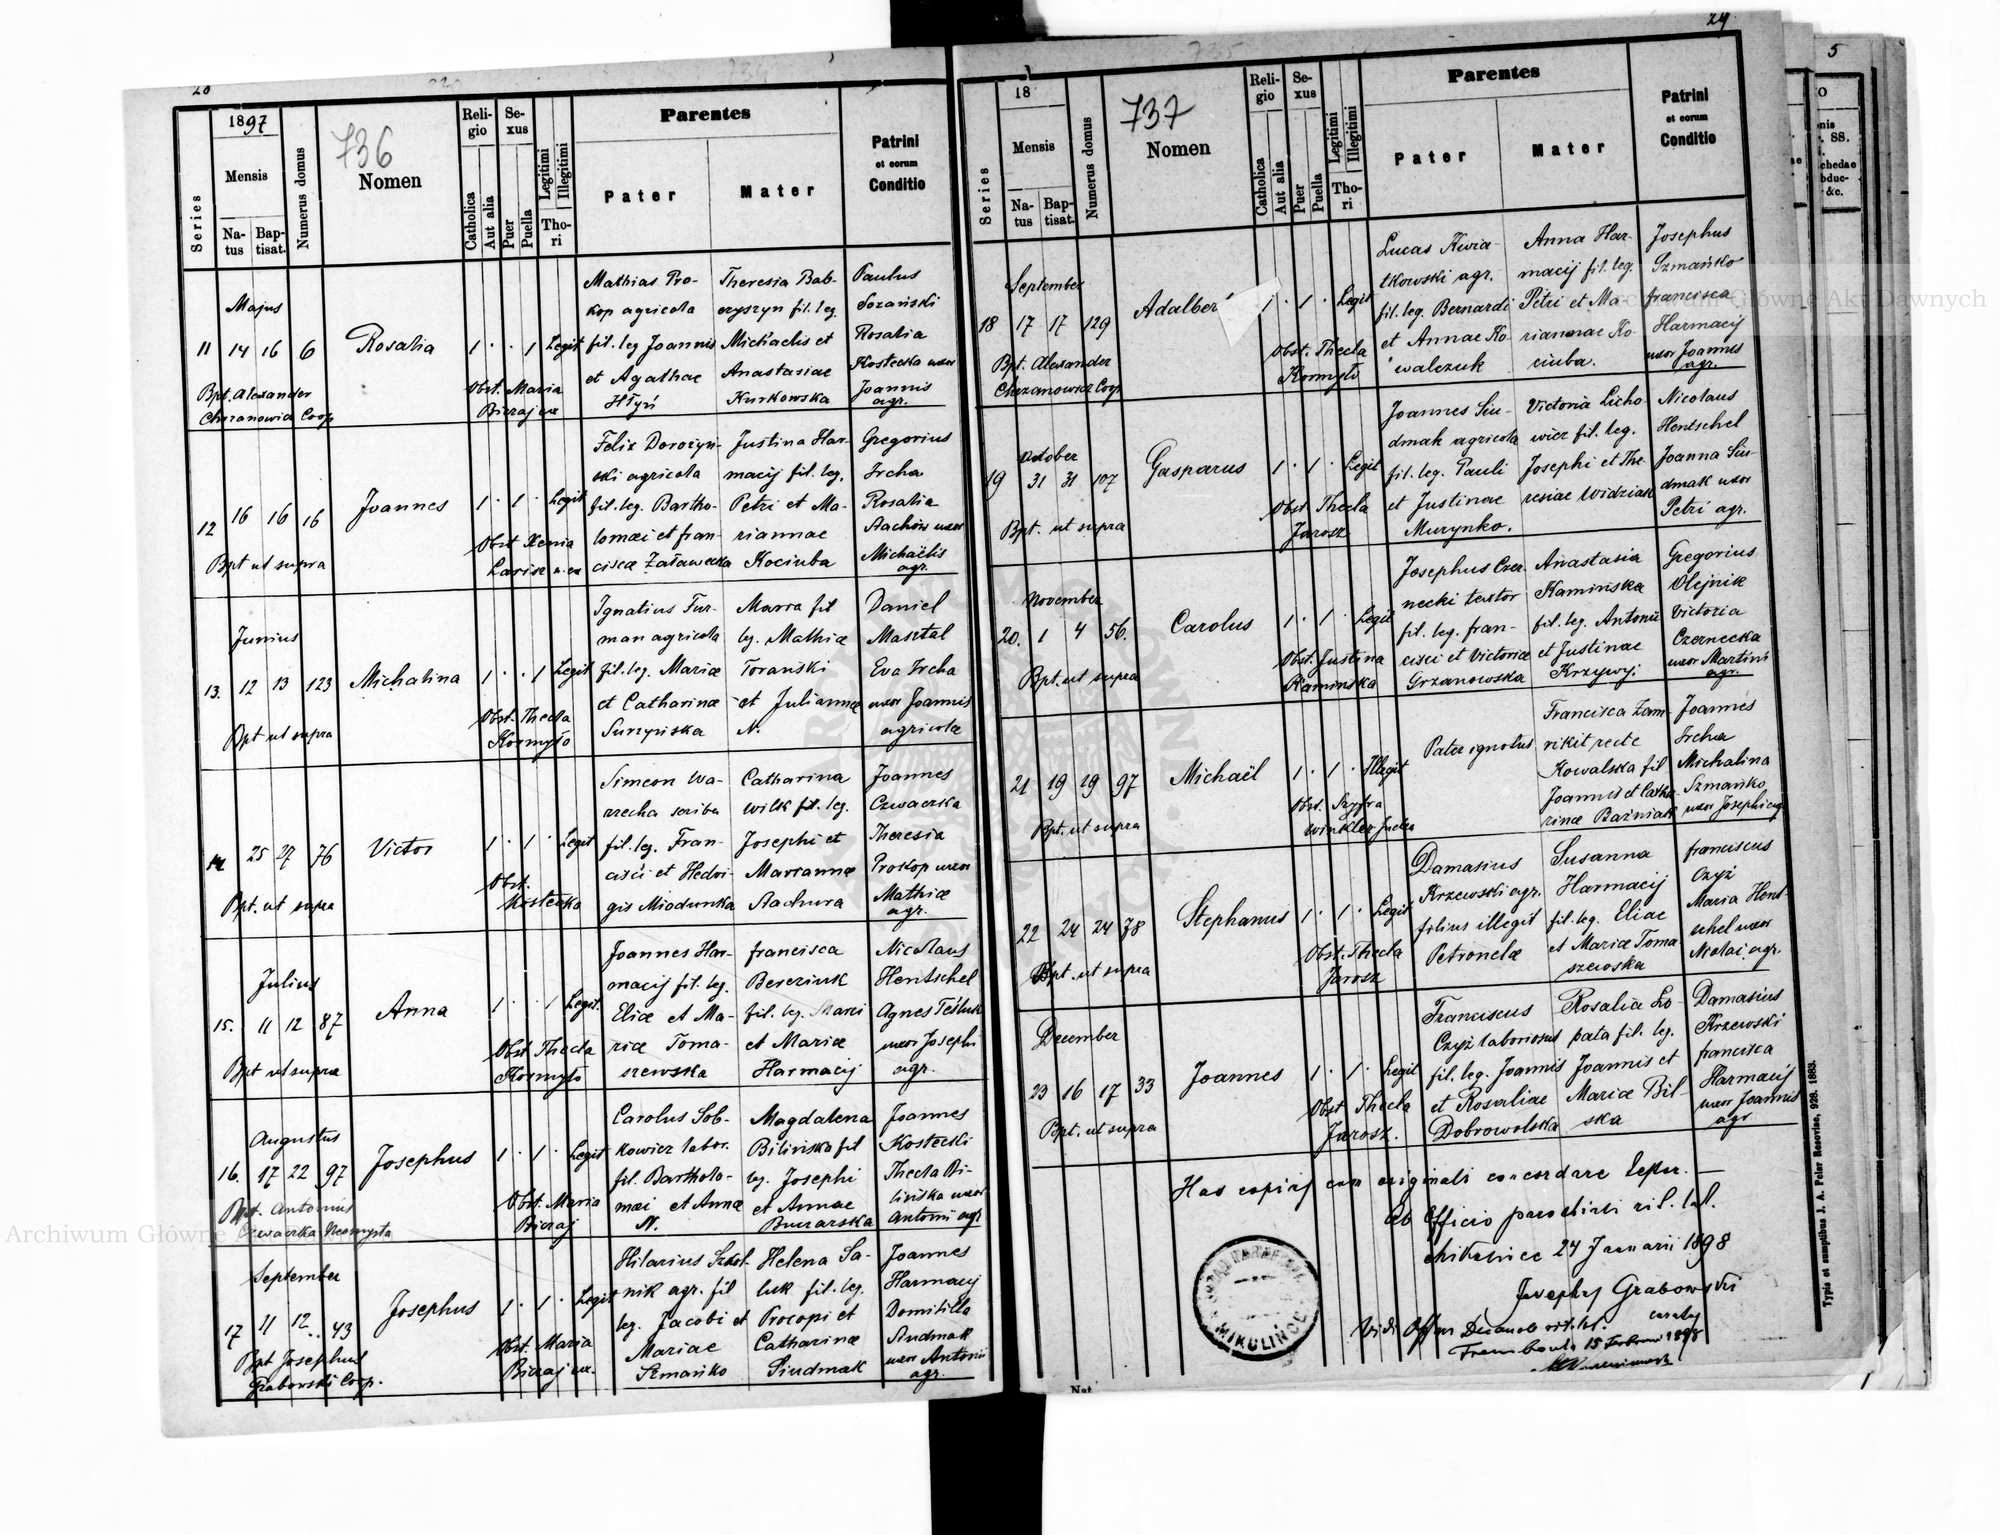 1897
736
Series
Mensis
Natus
Baptisat.
Numerus domus
Nomen
Religio
Catholica
Aut alia
Sexus
Puer
Puella
Legitimi
Illegitimi
Thori
Parentes
Pater
Mater
Patrini
et eorum
Conditio
Majus
11 14 16 6 Rosalia 1 . . 1 Legit
Bpt. Alexander
Chrzanowicz Coop
Obst. Maria
Mathias Pro-
kop agricola
fil. leg Joannis
et Agathae
Theresia Bab-
fil. leg.
Michaelis et
Anastasiae
Kurkowska
Paulus
Sozański
Rosalia
Kostecka uxor
Joannis
agr.
12 16 16 16 Joannes 1 . 1 . Legit
Bpt ut supra
Obst Xenia
Felix Dorozyn-
ski agricola
fil. leg. Bartho-
lomaei et fran-
Justina Har-
macij fil. leg.
Petri et Ma-
riannae
Kociuba
Gregorius
Ircha
Rosalia
uxor
Michaëlis
agr.
Junius
13. 12 13 123 Michalina 1 . . 1 Legit
Bpt ut supra
Obst. Thecla
Kormyto
Ignatius Fur-
man agricola
fil. leg. Mariæ
et Catharinæ
Maria fil
leg. Mathiæ
Toranski
et Juliannæ
N.
Daniel
Masztal
Eva Ircha
uxor Joannis
agricola
14 25 27 76 Victor 1 . 1 . Legit
Bpt. ut supra
Obst.
Kostecka
Simeon Wa-
rzecha scriba
fil. leg. Fran-
cisci et Hedvi-
gis Miodunka
Catharina
Wilk fil. leg.
Josephi et
Mariannæ
Joannes
Theresia
Prokop uxor
Mathiæ
agr.
Julius
15. 11 12 87 Anna 1 . . 1 Legit.
Bpt ut supra
Obst Thecla
Kormyto
Joannes Har-
macij fil. leg.
Eliæ et Ma-
riæ Toma-
szewska
francisca
Bereziuk
fil. leg. Marci
et Mariæ
Harmacij
Nicolaus
Hentschel
Agnes Tesluk
uxor Josephi
agr.
Augustus
16. 17 22 97 Josephus 1 . 1 . Legit
Bpt. Antonius
Czwaczka Neomysta
Obst. Maria
Bieraj
Carolus Sob-
kowicz labor.
fil. Bartholo-
mæi et Annæ
N.
Magdalena
Bilińska fil
leg. Josephi
et Annae
Bucarska
Joannes
Kostecki
Thecla Bi-
lińska uxor
Antonii agr
September
17 11 12 43 Josephus 1 . 1 . Legit
Bpt Josephus
Grabowski Coop.
Obst. Maria
Hilarius Szkol-
nik agr. fil
leg. Jacobi et
Mariae
Szmańko
Helena Sa-
luk fil. leg.
Procopi et
Catharinæ
Siudmak
Joannes
Harmacij
Domitilla
Siudmak
uxor Antonii
agr.
29
18
737
Series
Mensis
Natus
Baptisat.
Numerus domus
Nomen
Religio
Catholica
Aut alia
Sexus
Puer
Puella
Legitimi
Illegitimi
Thori
Parentes
Pater
Mater
Patrini
et eorum
Conditio
September
18 17 17 129 Adalber 1 . 1 . Legit
Bpt. Alexander
Chrzanowicz Coop
Obst. Thecla
Kormyto
Lucas Kwia-
tkowski agr.
fil. leg. Bernardi
et Annae Ko
walczuk
Anna Har-
macij fil. leg.
Petri et Ma-
riannae Ko-
ciuba.
Josephus
Szmańko
francisca
Harmacij
uxor Joannes
agr.
October
19 31 31 107 Gasparus 1 . 1 . Legit
Bpt. ut supra
Obst Thecla
Jarosz
Joannes Siu-
dmak agricola
fil. leg. Pauli
et Justinae
Murynko.
Victoria Licho-
wicz fil. leg.
Josephi et The-
resiae Widziak
Nicolaus
Hentschel
Joanna Siu-
dmak uxor
Petri agr.
November
20. 1 4 56. Carolus 1 . 1 . Legit
Bpt. ut supra
Obst. Justina
Kaminska
Josephus Czer-
necki textor
fil. leg. fran-
cisci et Victoriæ
Grzanowska
Anastasia
Kamińska
fil. leg. Antonii
et Justinae
Krzywy.
Gregorius
Olejnik
Victoria
Czernecka
uxor Martini
agr.
21 19 19 97 Michaël 1 . 1 . Illegit
Bpt. ut supra
Obst. Szyfra
Winkler Judea
Pater ignotus
Francisca Zam-
rikit recte
Kowalska fil
Joannis et Catha
rinæ Baźniak
Joannes
Ircha
Michalina
Szmańko
uxor Josephi agr
22 24 24 78 Stephanus 1 . 1 . Legit
Bpt. ut supra
Obst. Thecla
Jarosz
Damasius
Krzewski agr.
filius illegit
Petronelæ
Susanna
Harmacij
fil. leg. Eliae
et Mariæ Toma
szewska
franciscus
Czyż
Maria Hent
schel uxor
Nicolai agr.
December
23 16 17 33 Joannes 1 . 1 . Legit
Bpt. ut supra
Obst Thecla
Jarosz.
Franciscus
Czyż laboriosus
fil. leg. Joannis
et Rosaliae
Dobrowolska
Rosalia Lo-
pata fil. leg.
Joannis et
Mariæ Bil-
ska
Damasius
Krzewski
francisca
Harmacij
uxor Joannis
agr
Has copias cum originali concordare testor. —
Ab Officio parochiali rit. lat.
Mikulince 24 Januarii 1898
Josephus Grabowski
MIKULINCE
Typis et sumptibus J. A. Pelar Resoviae, 928. 1883.
5
88.
schedae
&c.
Nat
Archiwum Główne Akt Dawnych
Archiwum Główne